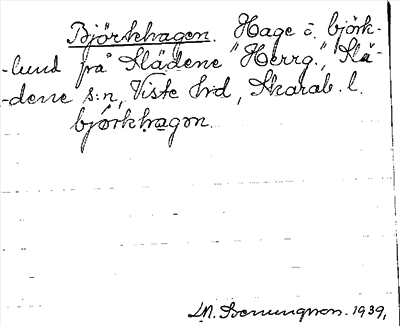 Björkhagen. Hage o. björk-
-lund på Slädene "Herrg.", Slä-
-dene s:n, Viste hrd, Skarab. l.
bjørkhagən.
M. Benungson. 1939.